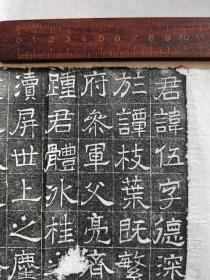 0 1 2 3 4 5 6 7 8 9 10 11
君諱伍字德深
於譚枝葉既繁
府叅軍父亮齊
踵君體冰桂
瀆屏世上之塵